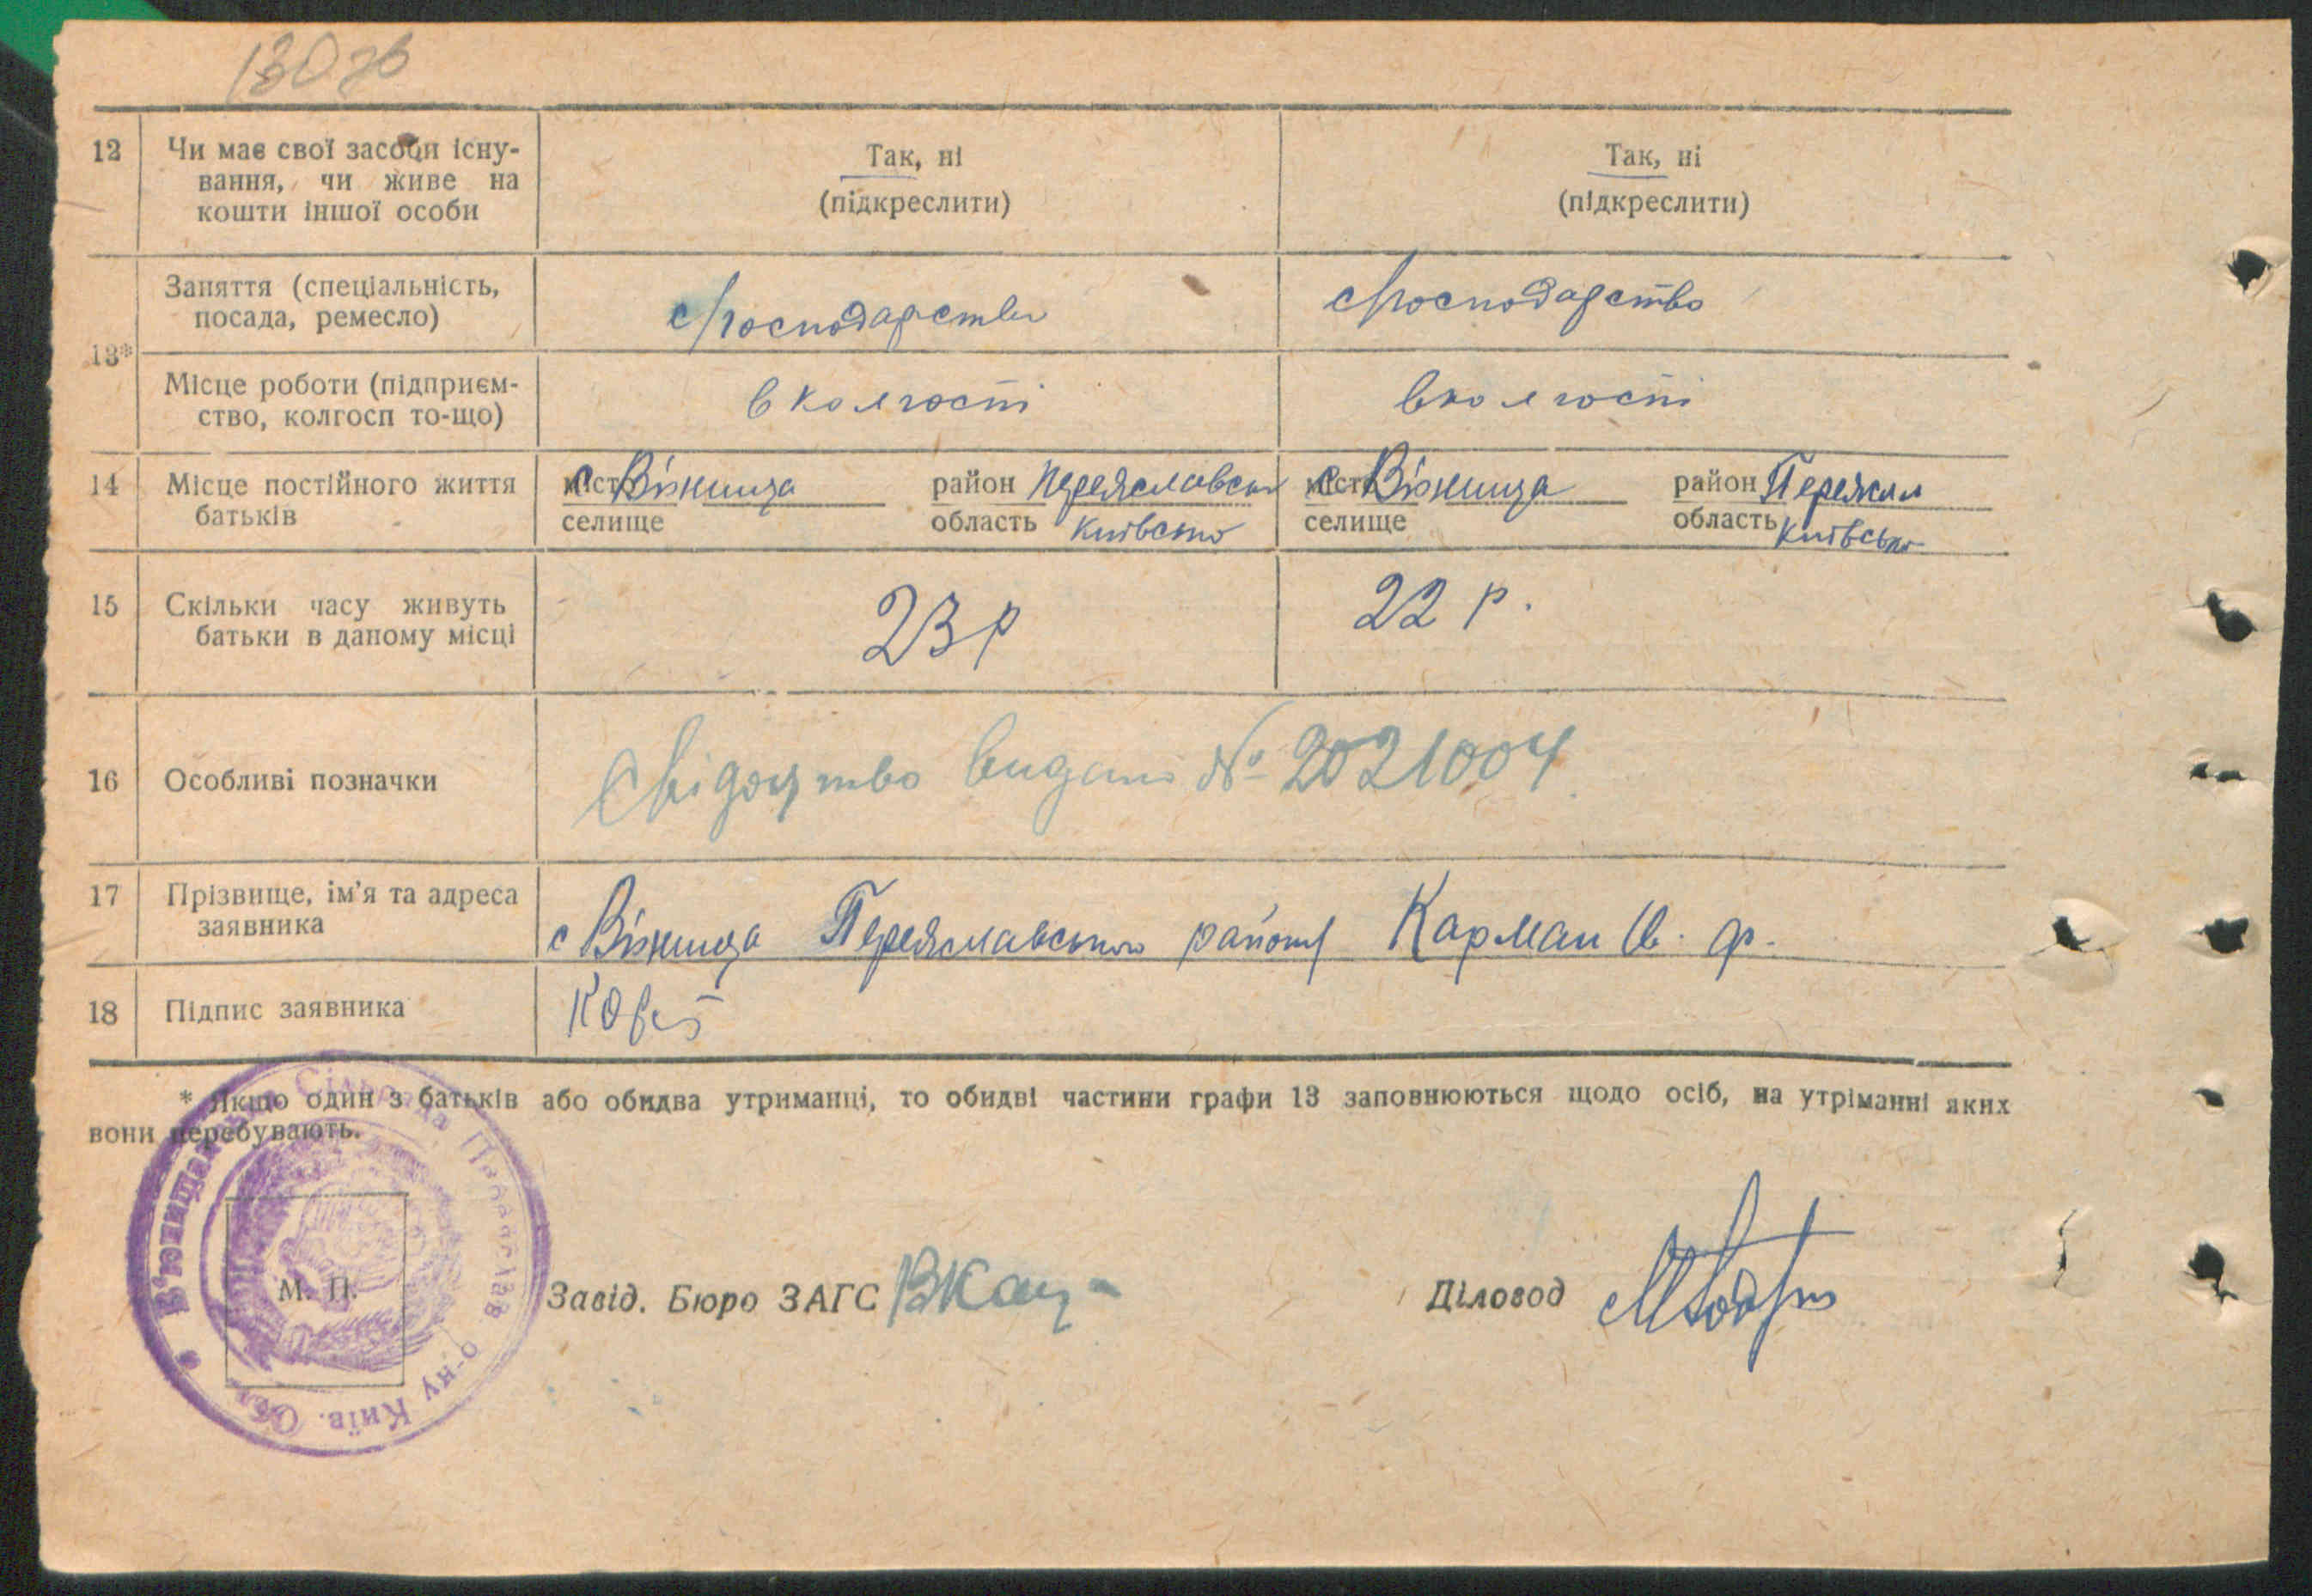 130 зв
12 Чи має свої засоби існу- Так, ні Так, ні
вання, чи живе на (підкреслити) (підкреслити)
кошти іншої особи
13* Заняття (спеціальність, с/господарство с/господарство
посада, ремесло)
Місце роботи (підприєм- в колгоспі в колгоспі
ство, колгосп то-що)
14 Місце постійного життя місто с Вінниця район Переяславськ місто с Вінниця район Переясл
батьків селище область Київсько селище область Київсько
15 Скільки часу живуть 23 р 22 р.
батьки в даному місці
16 Особливі позначки Свідоцтво видано № 2021004
17 Прізвище, ім'я та адреса
заявника с Переяславського району Карман
18 Підпис заявника
* Якщо один з батьків або обидва утриманці, то обидві частини графи 13 заповнюються щодо осіб, на утріманні яких
вони перебувають.
Сільрада Переяслав. р-ну Київ. Обл.
М. П.
Завід. Бюро ЗАГС
Діловод